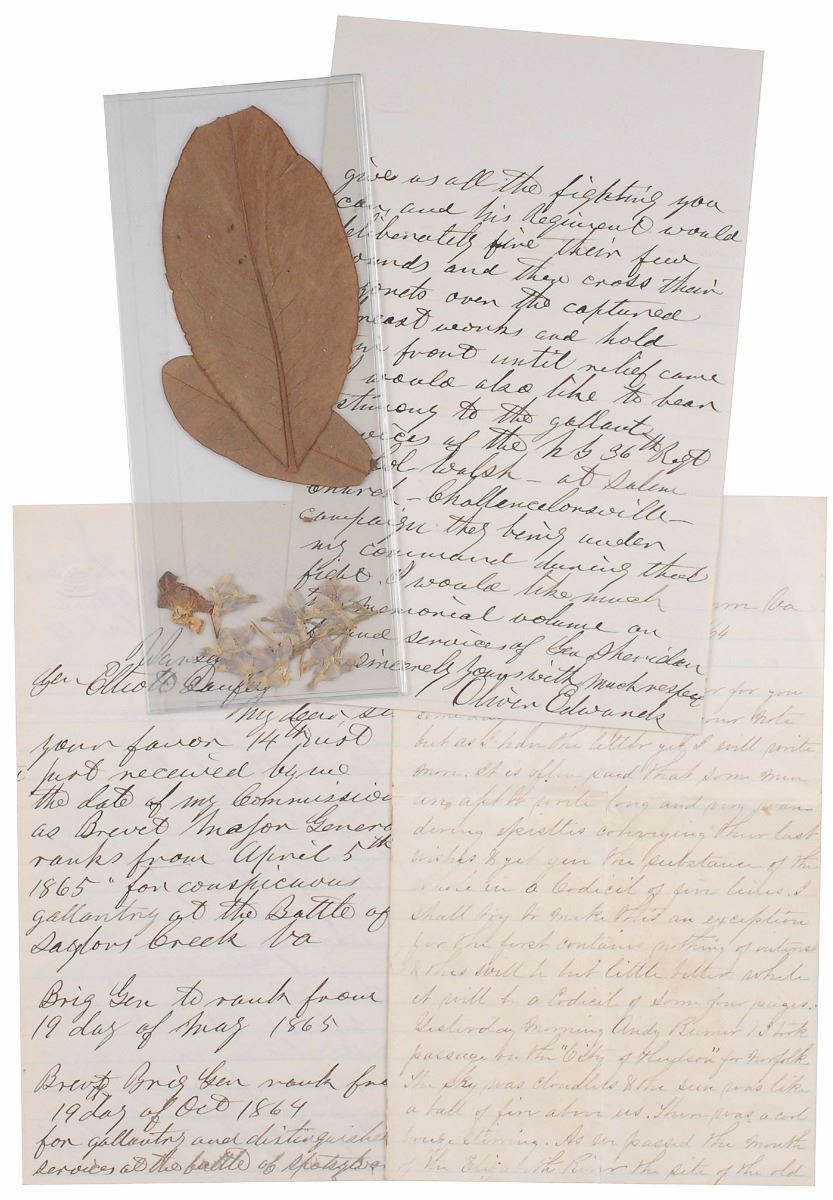 give us all the fighting you
can, and his Regiment would
deliberately fire their few
rounds and then cross their
bayonets over the captured
breast works and hold
front until relief came
I would also like to bear
testimony to the gallant
services of the NY 36th Regt
Col Walsh - at Salem
Church - Chancelorsville -
campaign they being under
my command during that
fight. I would like much
memorial volume on
services of Gen Sheridan
sincerely yours with much respect
Oliver Edwards
Gen Elliott
My Dear Sir
your favor 14th inst
just received by me
the date of my Commission
as Brevet Major General
ranks from April 5th
1865 "for conspicuous
gallantry at the Battle of
Saylors Creek Va
Brig Gen to rank from
19 day of May 1865
Brevt Brig Gen rank fro
19 day of Oct 1864
for gallantry and distinguished
services at the battle of Spotsylva
Va
64
for you
your note
but as I have the letter yet, I will write
more. It is often said that some men
are apt to write long and very
epistles conveying their last
wishes & yet give the substance of the
whole in a Codicil of five lines. I
shall try to make this an exception
for the first contains nothing of
& this will be but little better while
it will be a Codicil of some four pages.
Yesterday Morning Andy & I took
passage on the "City of Hudson" for Norfolk
The sky was cloudless & the sun was like
a ball of fire above us. There was a cool
breeze stirring. As we passed the mouth
of the Elizabeth River the site of the old